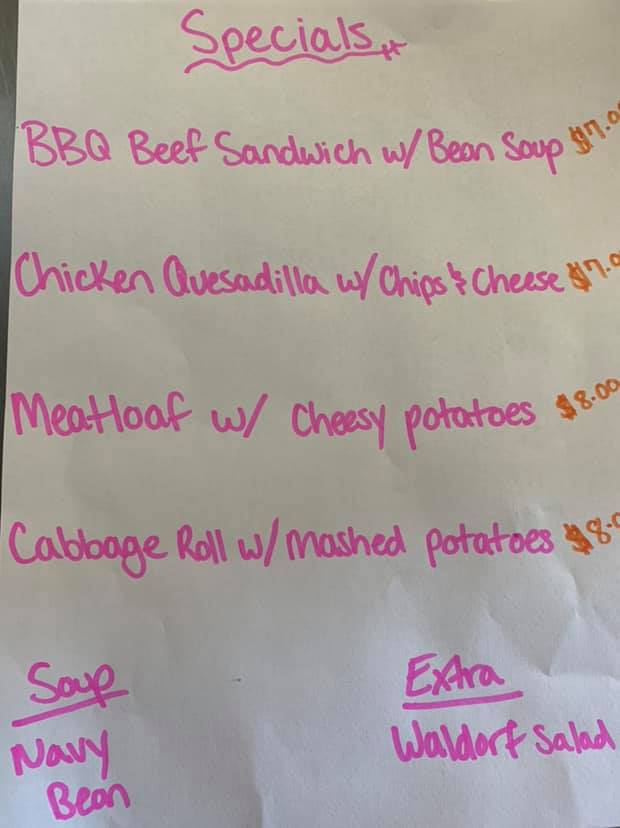 Specials
BBQ Beef Sandwich w/ Bean Soup $7.0
Chicken Quesadilla w/ Chips & Cheese $7.0
Meatloaf w/ Cheesy potatoes $8.00
Cabbage Roll w/ Mashed potatoes $8.0
Soup
Navy
Bean
Extra
Waldorf Salad